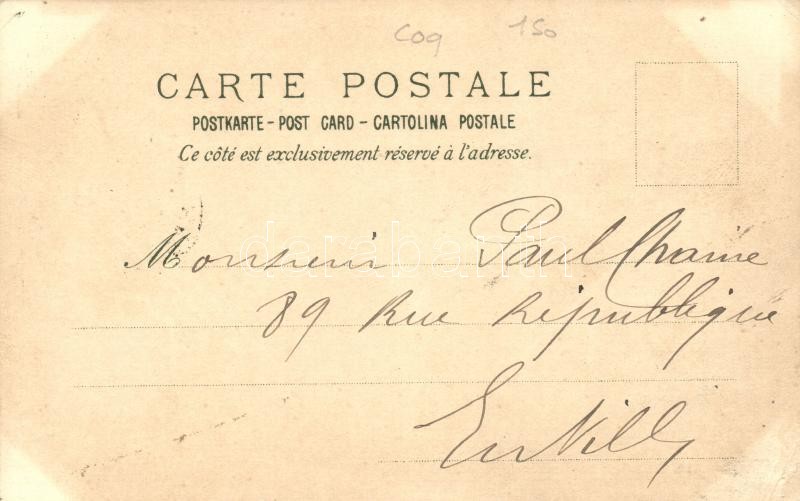 Coq 150
CARTE POSTALE
POSTKARTE - POST CARD - CARTOLINA POSTALE
Ce côté est exclusivement réservé à l'adresse.
Monsieur Paul Chaine
89 Rue République
En Ville